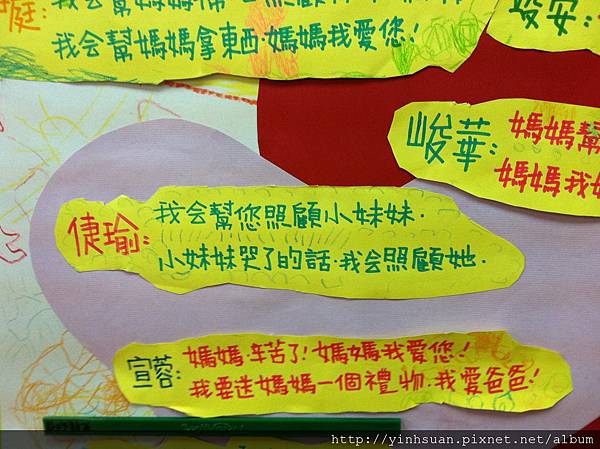 庭:
我会幫媽媽拿東西·媽媽我愛您!
峻安:
峻華:
媽媽幫
媽媽我
倢瑜:
我会幫您照顧小妹妹·
小妹妹哭了的話·我会照顧她·
宣蓉:
媽媽·辛苦了!媽媽我愛您!
我要送媽媽一個禮物·我愛爸爸!
http://yinhsuan.pixnet.net/album